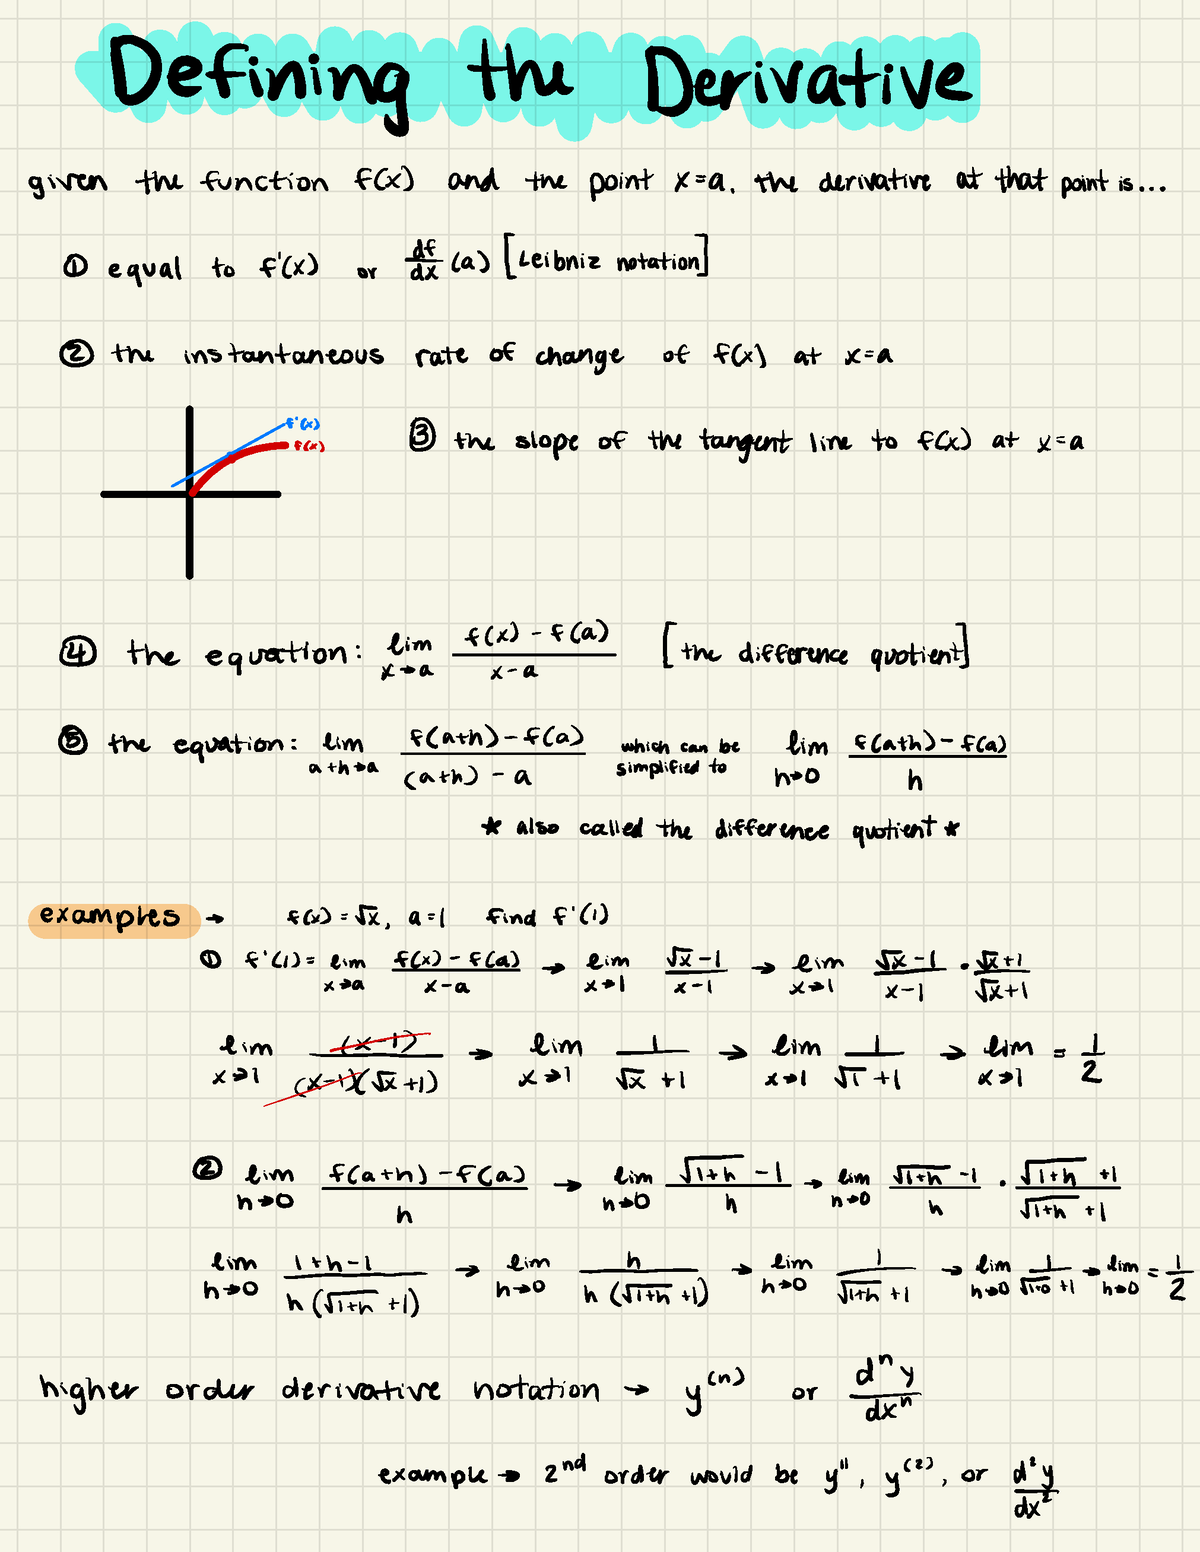 Defining the Derivative
given the function f(x) and the point x=a, the derivative at that point is...
① equal to f'(x) or df/dx (a) [Leibniz notation]
② the instantaneous rate of change of f(x) at x=a
f'(x)
f(x)
③ the slope of the tangent line to f(x) at x=a
④ the equation: lim x→a (f(x) - f(a))/(x-a) [the difference quotient]
⑤ the equation: lim a+h→a (f(a+h) - f(a))/((a+h) - a) which can be simplified to lim h→0 (f(a+h) - f(a))/h
* also called the difference quotient *
examples → f(x) = √x, a=1 find f'(1)
① f'(1) = lim x→a (f(x) - f(a))/(x-a) → lim x→1 (√x - 1)/(x-1) → lim x→1 (√x - 1)/(x-1) · (√x+1)/(√x+1)
lim x→1 (x-1)/((x-1)(√x+1)) → lim x→1 1/(√x +1) → lim x→1 1/(√1 +1) → lim x→1 = 1/2
② lim h→0 (f(a+h) - f(a))/h → lim h→0 (√(1+h) - 1)/h → lim h→0 (√(1+h) -1)/h · (√(1+h) +1)/(√(1+h) +1)
lim h→0 (1+h-1)/(h(√(1+h) +1)) → lim h→0 h/(h(√(1+h) +1)) → lim h→0 1/(√(1+h) +1) → lim h→0 1/(√(1+0) +1) → lim h→0 = 1/2
higher order derivative notation → y⁽ⁿ⁾ or dⁿy/dxⁿ
example → 2nd order would be y", y⁽²⁾, or d²y/dx²